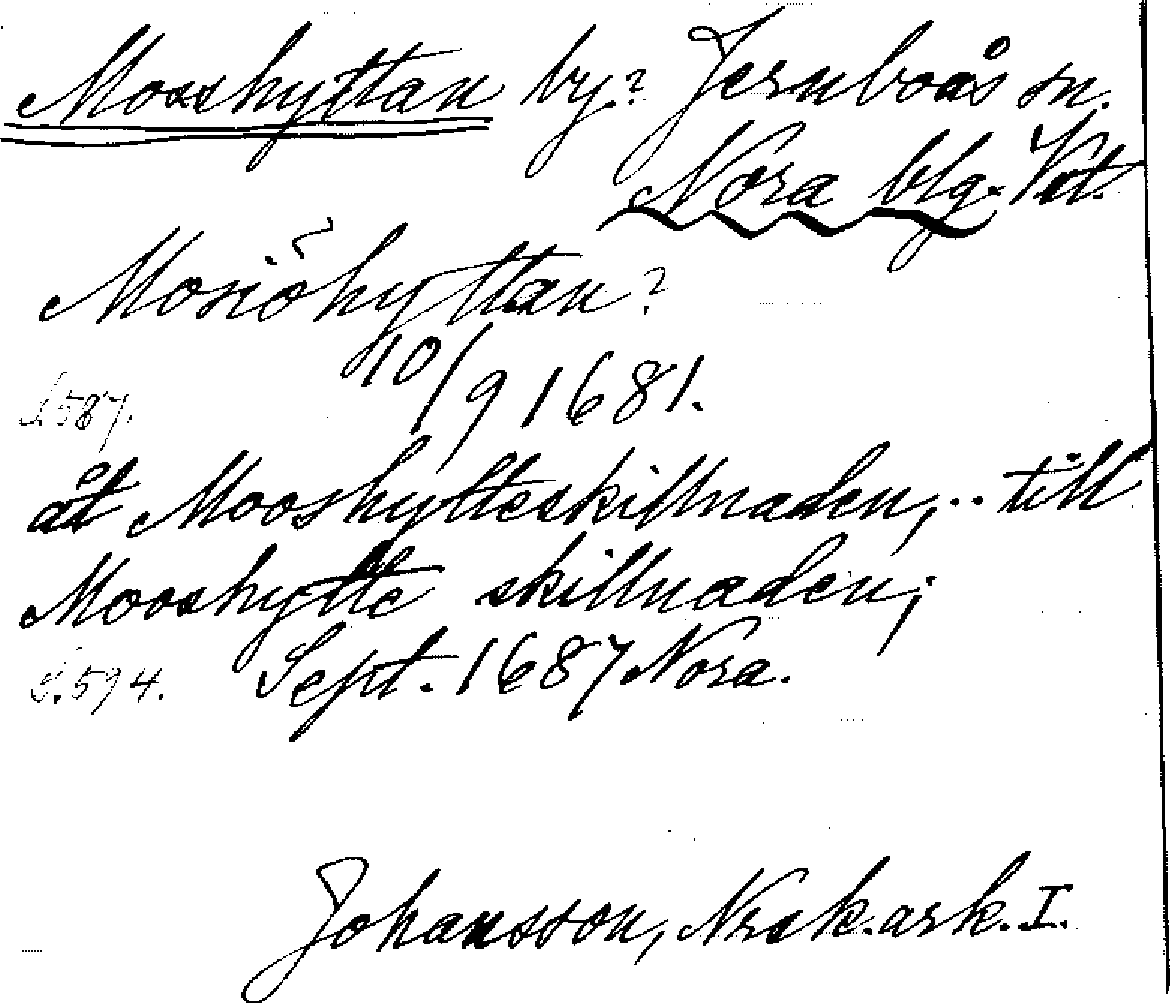 Mosshyttan by? Jernboås sn.
Nora blg. Vstm.
Mosiöhyttan?
10/9 1681.
S. 587.
åt Mooshytteskillnaden, .. till
Mooshytte skillnaden;
S. 594. Sept. 1687 Nora.
Johansson, Nrsk. ark. I.